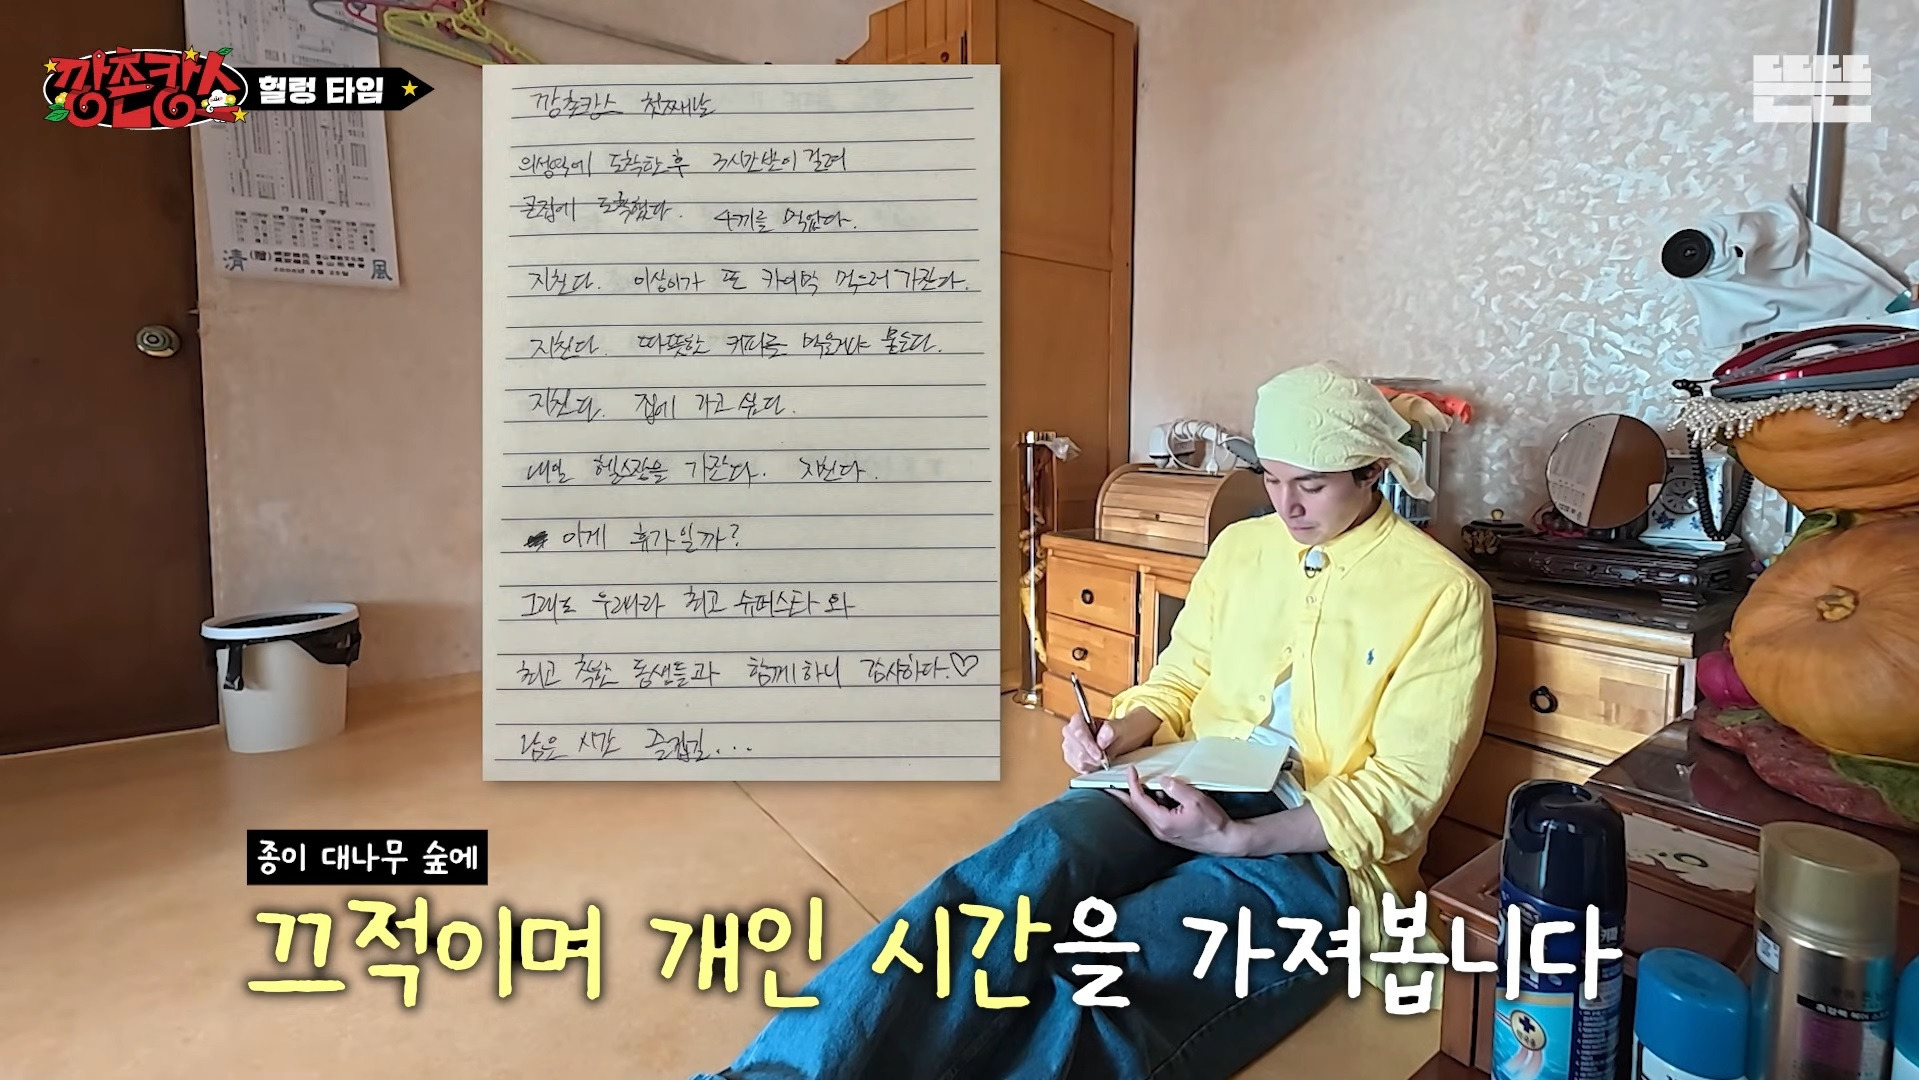 깡촌캉스
헐렁 타임
뜬뜬
清 (贈) 風
깡촌캉스 첫째날
의성역에 도착한 후 3시간반이 걸려
큰집에 도착했다. 4끼를 먹었다.
지친다. 이상이가 또 카이막 먹으러 가잔다.
지친다. 따뜻한 커피를 먹을거냐 묻는다.
지친다. 집에 가고 싶다.
내일 헬스장을 가잔다. 지친다.
이게 휴가일까?
그래도 우리나라 최고 슈퍼스타와
최고 착한 동생들과 함께하니 감사하다.♡
남은 시간 즐겁길...
종이 대나무 숲에
끄적이며 개인 시간을 가져봅니다